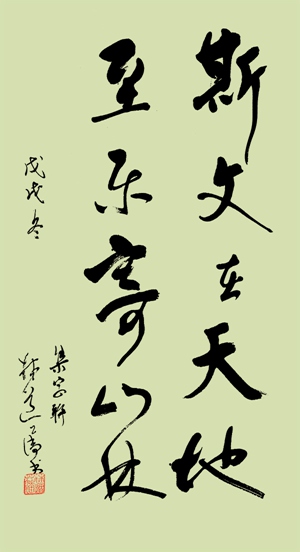 斯文在天地
至乐寄山林
戊戌冬
集字轩